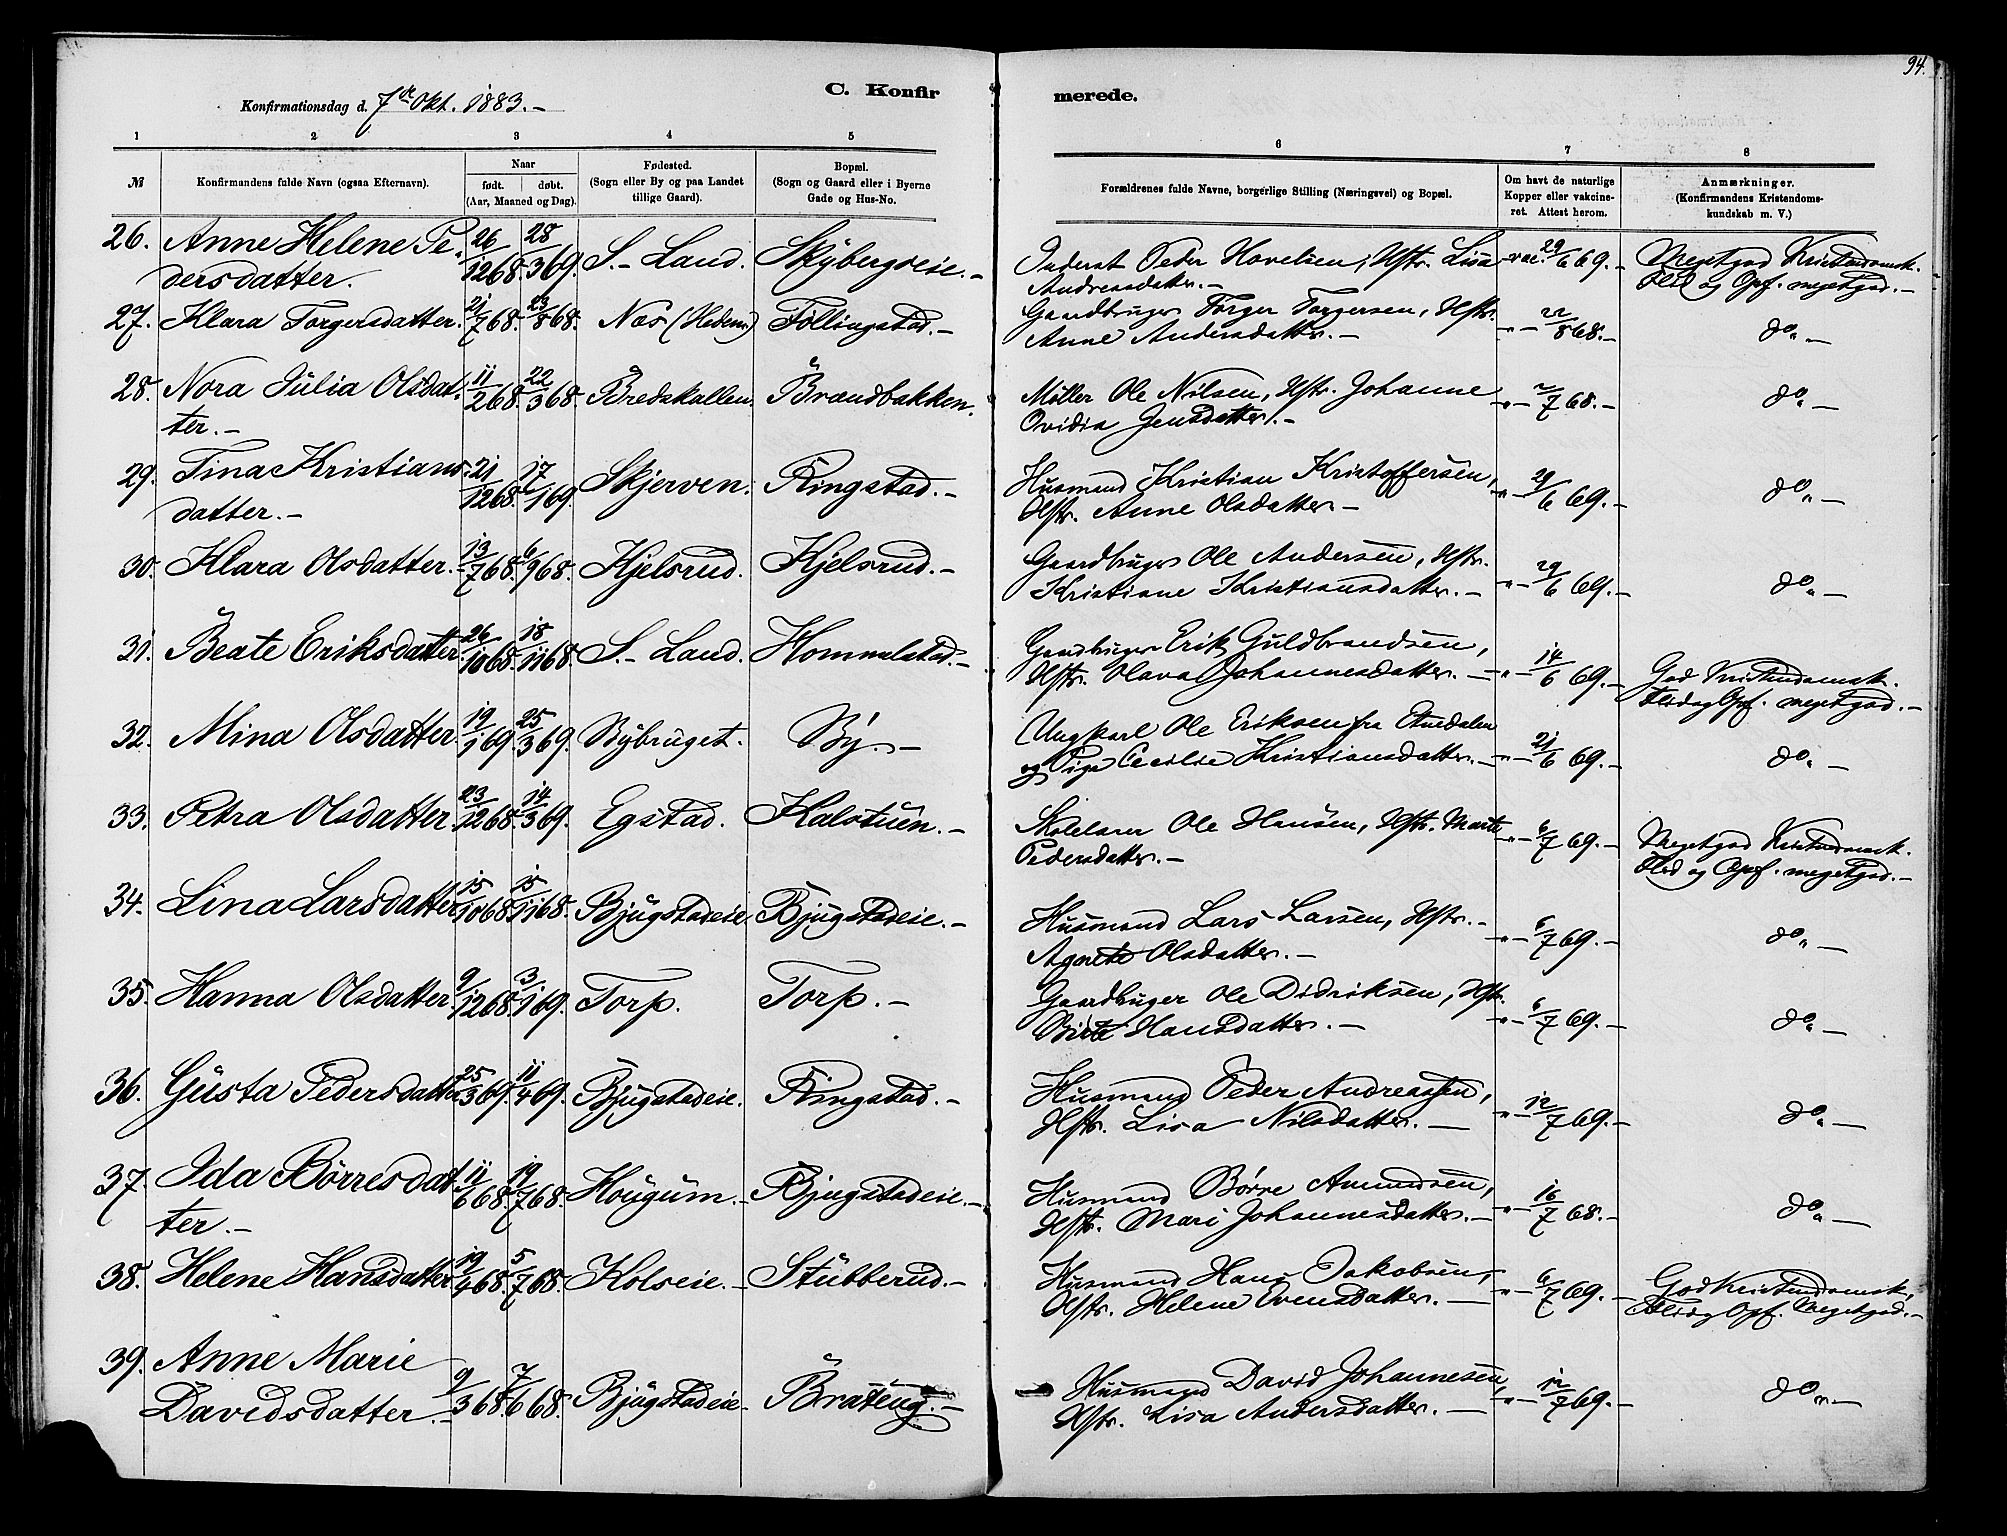 94.
Konfirmationsdag d. 7de Okt. 1883.-
C. Konfir
merede.
1 2 3 4 5 6 7 8
№
Konfirmandens fulde Navn (ogsaa Efternavn).
Naar
født. døbt.
(Aar, Maaned og Dag).
Fødested.
(Sogn eller By og paa Landet
tillige Gaard).
Bopæl.
(Sogn og Gaard eller i Byerne
Gade og Hus-No.
Forældrenes fulde Navne, borgerlige Stilling (Næringsvei) og Bopæl.
Om havt de naturlige
Kopper eller vakcine-
ret. Attest herom.
Anmærkninger.
(Konfirmandens Kristendoms-
kundskab m. V.)
26. Anne Helene Pe- 26/12 68. 28/3 69. S.- Land. Skybergseie.- Inderst Peder Hovelsen, Hstr. Lisa vac. 29/6 69.- Megetgod Kristendomsk.
dersdatter. Andreasdatter.- Flid og Opf. megetgod.-
27. Klara Torgersdatter. 21/7 68. 23/8 68. Nes (Hedem.) Tollingstad.- Gaardbruger Torger Torgersen, Hstr. -"- 22/8 68.- do.-
Anne Andersdatter.-
28. Nora Julia Olsdat- 11/2 68. 22/3 68. Bredskallen. Brændbakken. Møller Ole Nilsen, Hstr. Johanne -"- 2/7 68.- do.-
ter.- Ovidia Jensdatter.-
29. Tina Kristians- 21/12 68. 17/1 69. Skjerven. Ringstad.- Husmand Kristian Kristoffersen, -"- 29/6 69.- do.-
datter.- Hstr. Anne Olsdatter.-
30. Klara Olsdatter. 13/7 68. 6/9 68. Kjelsrud. Kjelsrud.- Gaardbruger Ole Andersen, Hstr. -"- 29/6 69.- do.-
Kristiane Kristiansdatter.-
31. Beate Eriksdatter. 26/10 68. 18/11 68. S.- Land. Hommelstad.- Gaardbruger Erik Guldbrandsen,
Hstr. Olava Johannesdatter.- -"- 14/6 69.- God Kristendomsk.
Flid og Opf. megetgod.-
32. Mina Olsdatter. 19/1 69. 25/3 69. Bybruget. By.- Ungkarl Ole Eriksen fra Etnedalen
og Pige Cecilie Kristiansdatter.- -"- 21/6 69.- do.-
33. Petra Olsdatter. 23/12 68. 14/3 69. Egstad. Kalvtuen.- Skolelærer Ole Hansen, Hstr. Marte -"- 6/7 69.- Megetgod Kristendomsk.
Pedersdatter.- Flid og Opf. megetgod.-
34. Lina Larsdatter. 15/10 68. 15/11 68. Bjugstadeie. Bjugstadeie.- Husmand Lars Larsen, Hstr.- -"- 6/7 69.- do.-
Agnete Olsdatter.-
35. Hanna Olsdatter. 9/12 68. 3/1 69. Torp. Torp.- Gaardbuger Ole Didriksen, Hstr. -"- 6/7 69.- do.-
Birte Hansdatter.-
36. Gusta Pedersdatter. 25/3 69. 11/4 69. Bjugstadeie. Ringstad.- Husmand Peder Andreassen,
Hstr. Lisa Nilsdatter.- -"- 12/7 69.- do.-
37. Ida Børresdat- 11/6 68. 19/7 68. Hougum.- Bjugstadeie.- Husmand Børre Amundsen,
ter.- Hstr. Mari Johannesdatter.- -"- 16/7 68.- do.-
38. Helene Hansdatter. 19/4 68. 5/7 68. Kolseie.- Stubberud.- Husmand Hans Jakobsen,
Hstr. Helene Evensdatter.- -"- 6/7 69.- God Kristendomsk.
Flid og Opf. Megetgod.-
39. Anne Marie
Davidsdatter.- 9/3 68. 7/6 68. Bjugstadeie. Brateng.- Husmand David Johannesen,
Hstr. Lisa Andersdatter.- -"- 12/7 69.- do.-